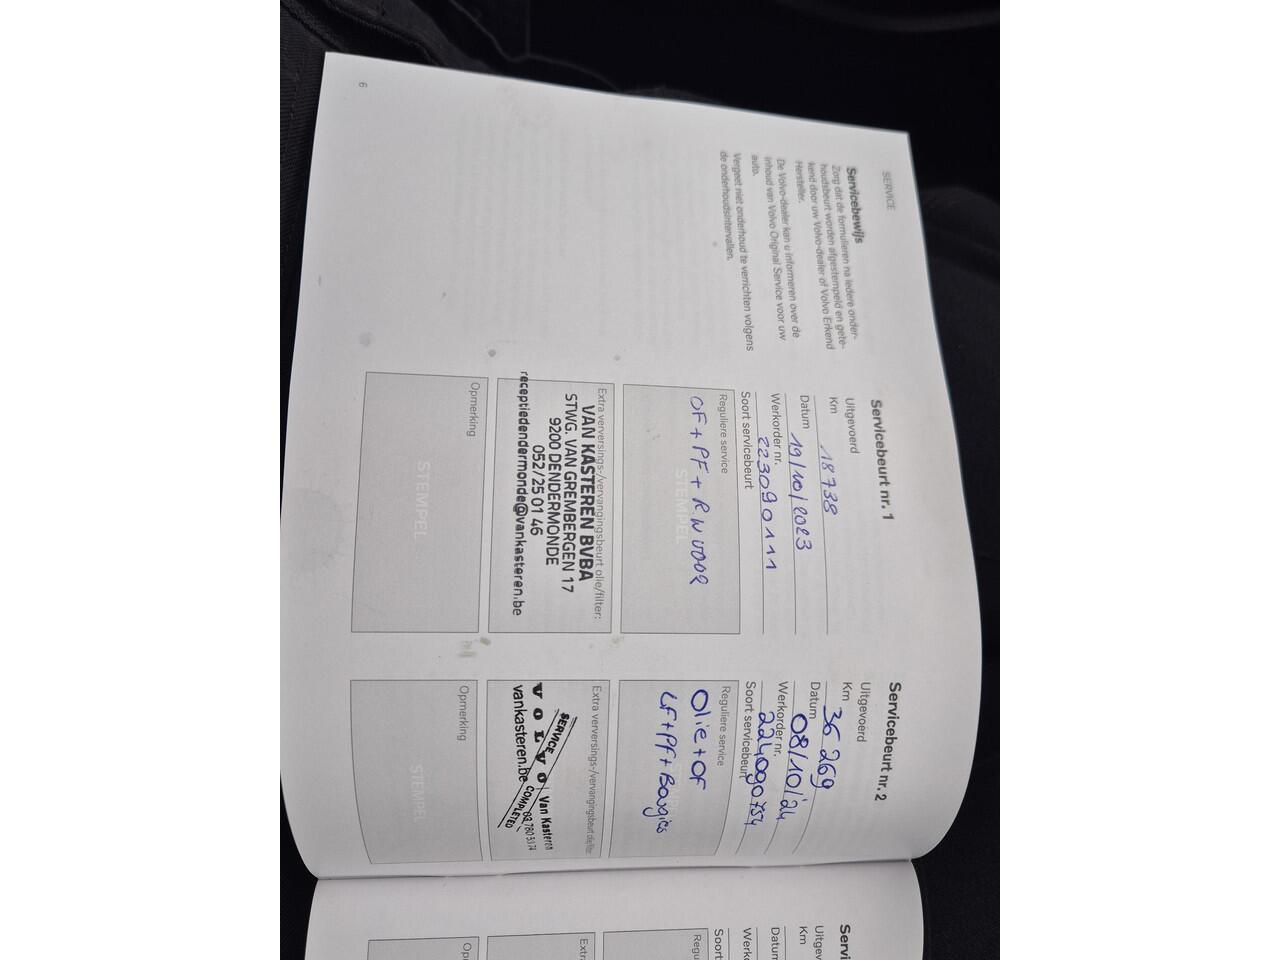 SERVICE
Servicebewijs
Zorg dat de formulieren na iedere onder-
houdsbeurt worden afgestempeld en gete-
kend door uw Volvo-dealer of Volvo Erkend
Hersteller.
De Volvo-dealer kan u informeren over de
inhoud van Volvo Original Service voor uw
auto.
Vergeet niet onderhoud te verrichten volgens
de onderhoudsintervallen.
Servicebeurt nr. 1
Uitgevoerd
Km 18738
Datum 19/10/2023
Werkorder nr. 223090111
Soort servicebeurt
Reguliere service
OF + PF + RW
STEMPEL
Extra verversings-/vervangingsbeurt olie/filter:
VAN KASTEREN BVBA
STWG. VAN GREMBERGEN 17
9200 DENDERMONDE
052/25 01 46
receptiedendermonde@vankasteren.be
Opmerking
STEMPEL
Servicebeurt nr. 2
Uitgevoerd
Km 36 269
Datum 08/10/24
Werkorder nr. 224090754
Soort servicebeurt
Reguliere service
Olie + OF
LF + PF + Bougies
STEMPEL
Extra verversings-/vervangingsbeurt olie/filter
SERVICE COMPLETED
VOLVO Van Kasteren
vankasteren.be
Opmerking
STEMPEL
6
Servi
Uitgevoerd
Km
Datum
Werko
Soort
Regu
Extra
Op